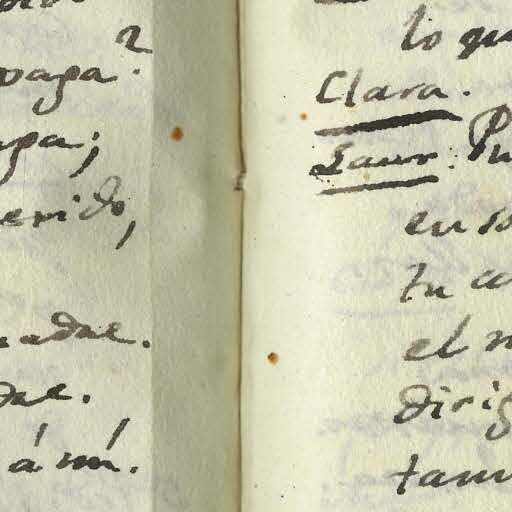 papa?
papa;
erido,
adre.
dre.
á mí.
lo qu
Clara.
Laur. Pu
en so
tu
el n
dirig
tam